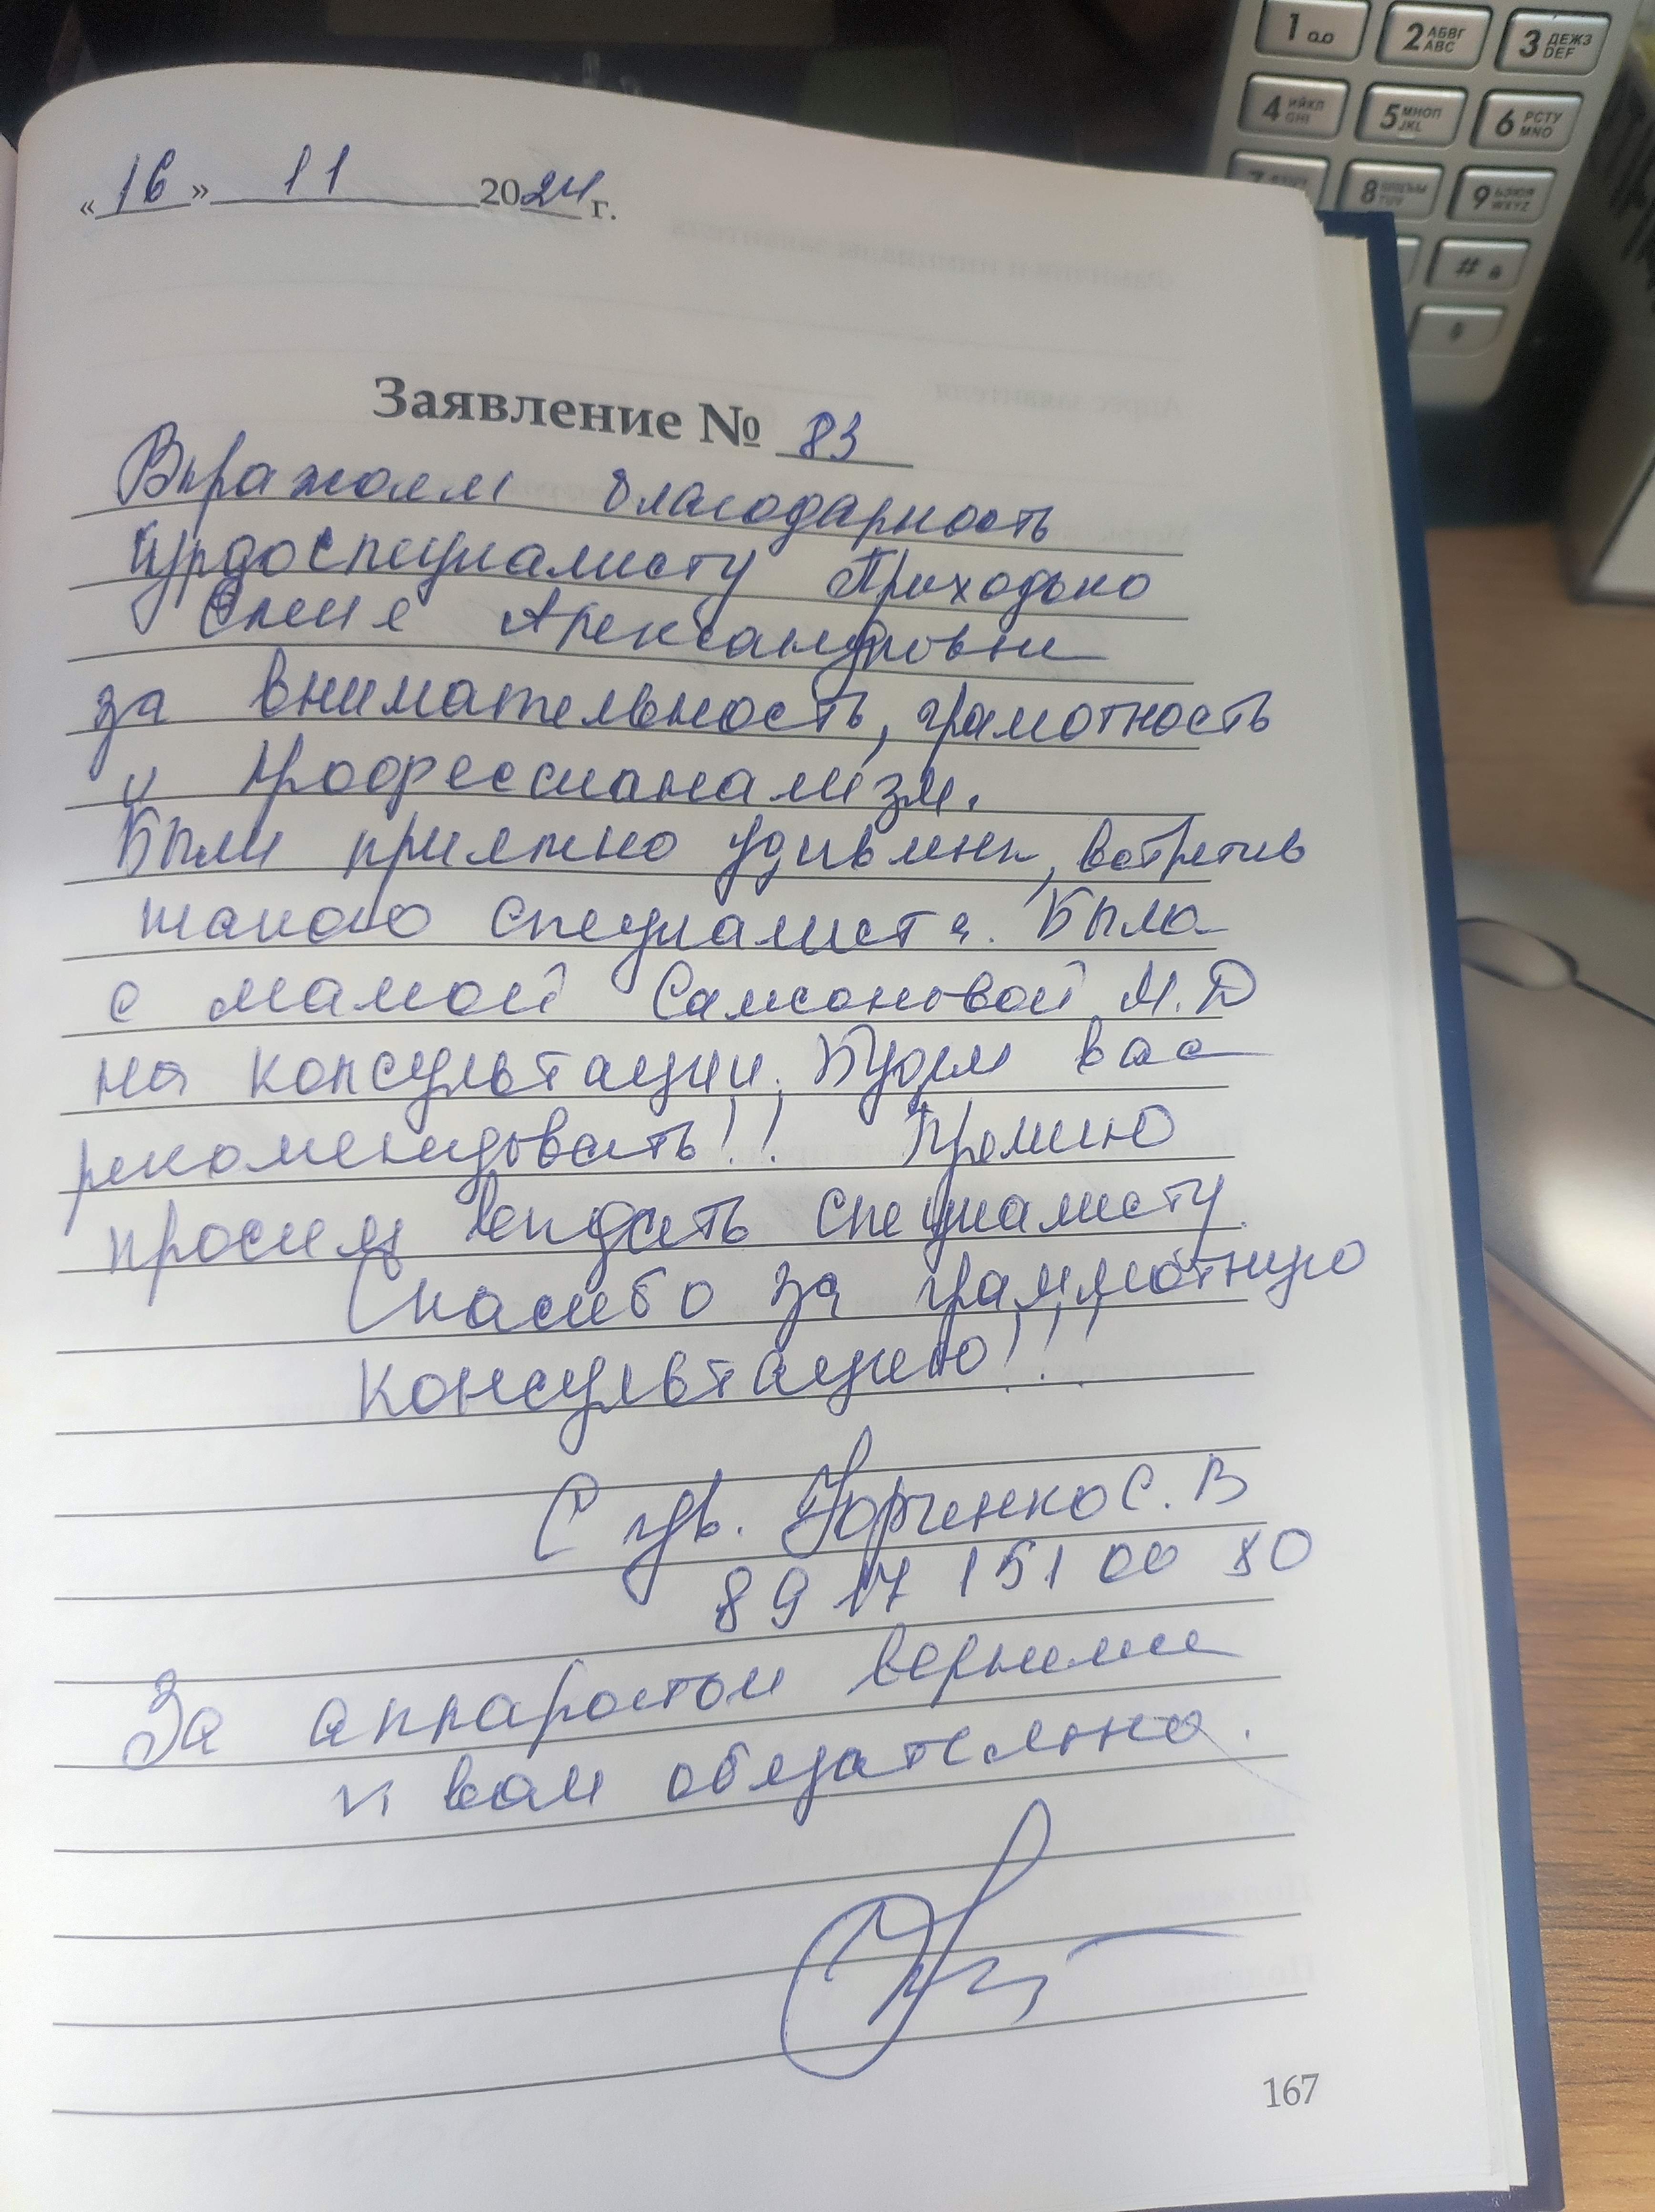 «16» 11 2024 г.
Заявление № 83
Выражаем благодарность
сурдоспециалисту Приходько
Елене Александровне
за внимательность, грамотность
и профессионализм.
Были приятно удивлены, встретив
такого специалиста. Была
с мамой Самсоновой М.Д
на консультации. Будем вас
рекомендовать!! Премию
просим выдать специалисту
Спасибо за грамотную
консультацию!!!
С ув. Юрченко С.В
8917 151 00 80
За аппаратом вернемся
к вам обязательно.
167
1
2 АБВГ ABC
3 ДЕЖЗ DEF
4 ИЙКЛ GHI
5 МНОП JKL
6 РСТУ MNO
8 TUV
9 ЬЭЮЯ WXYZ
#